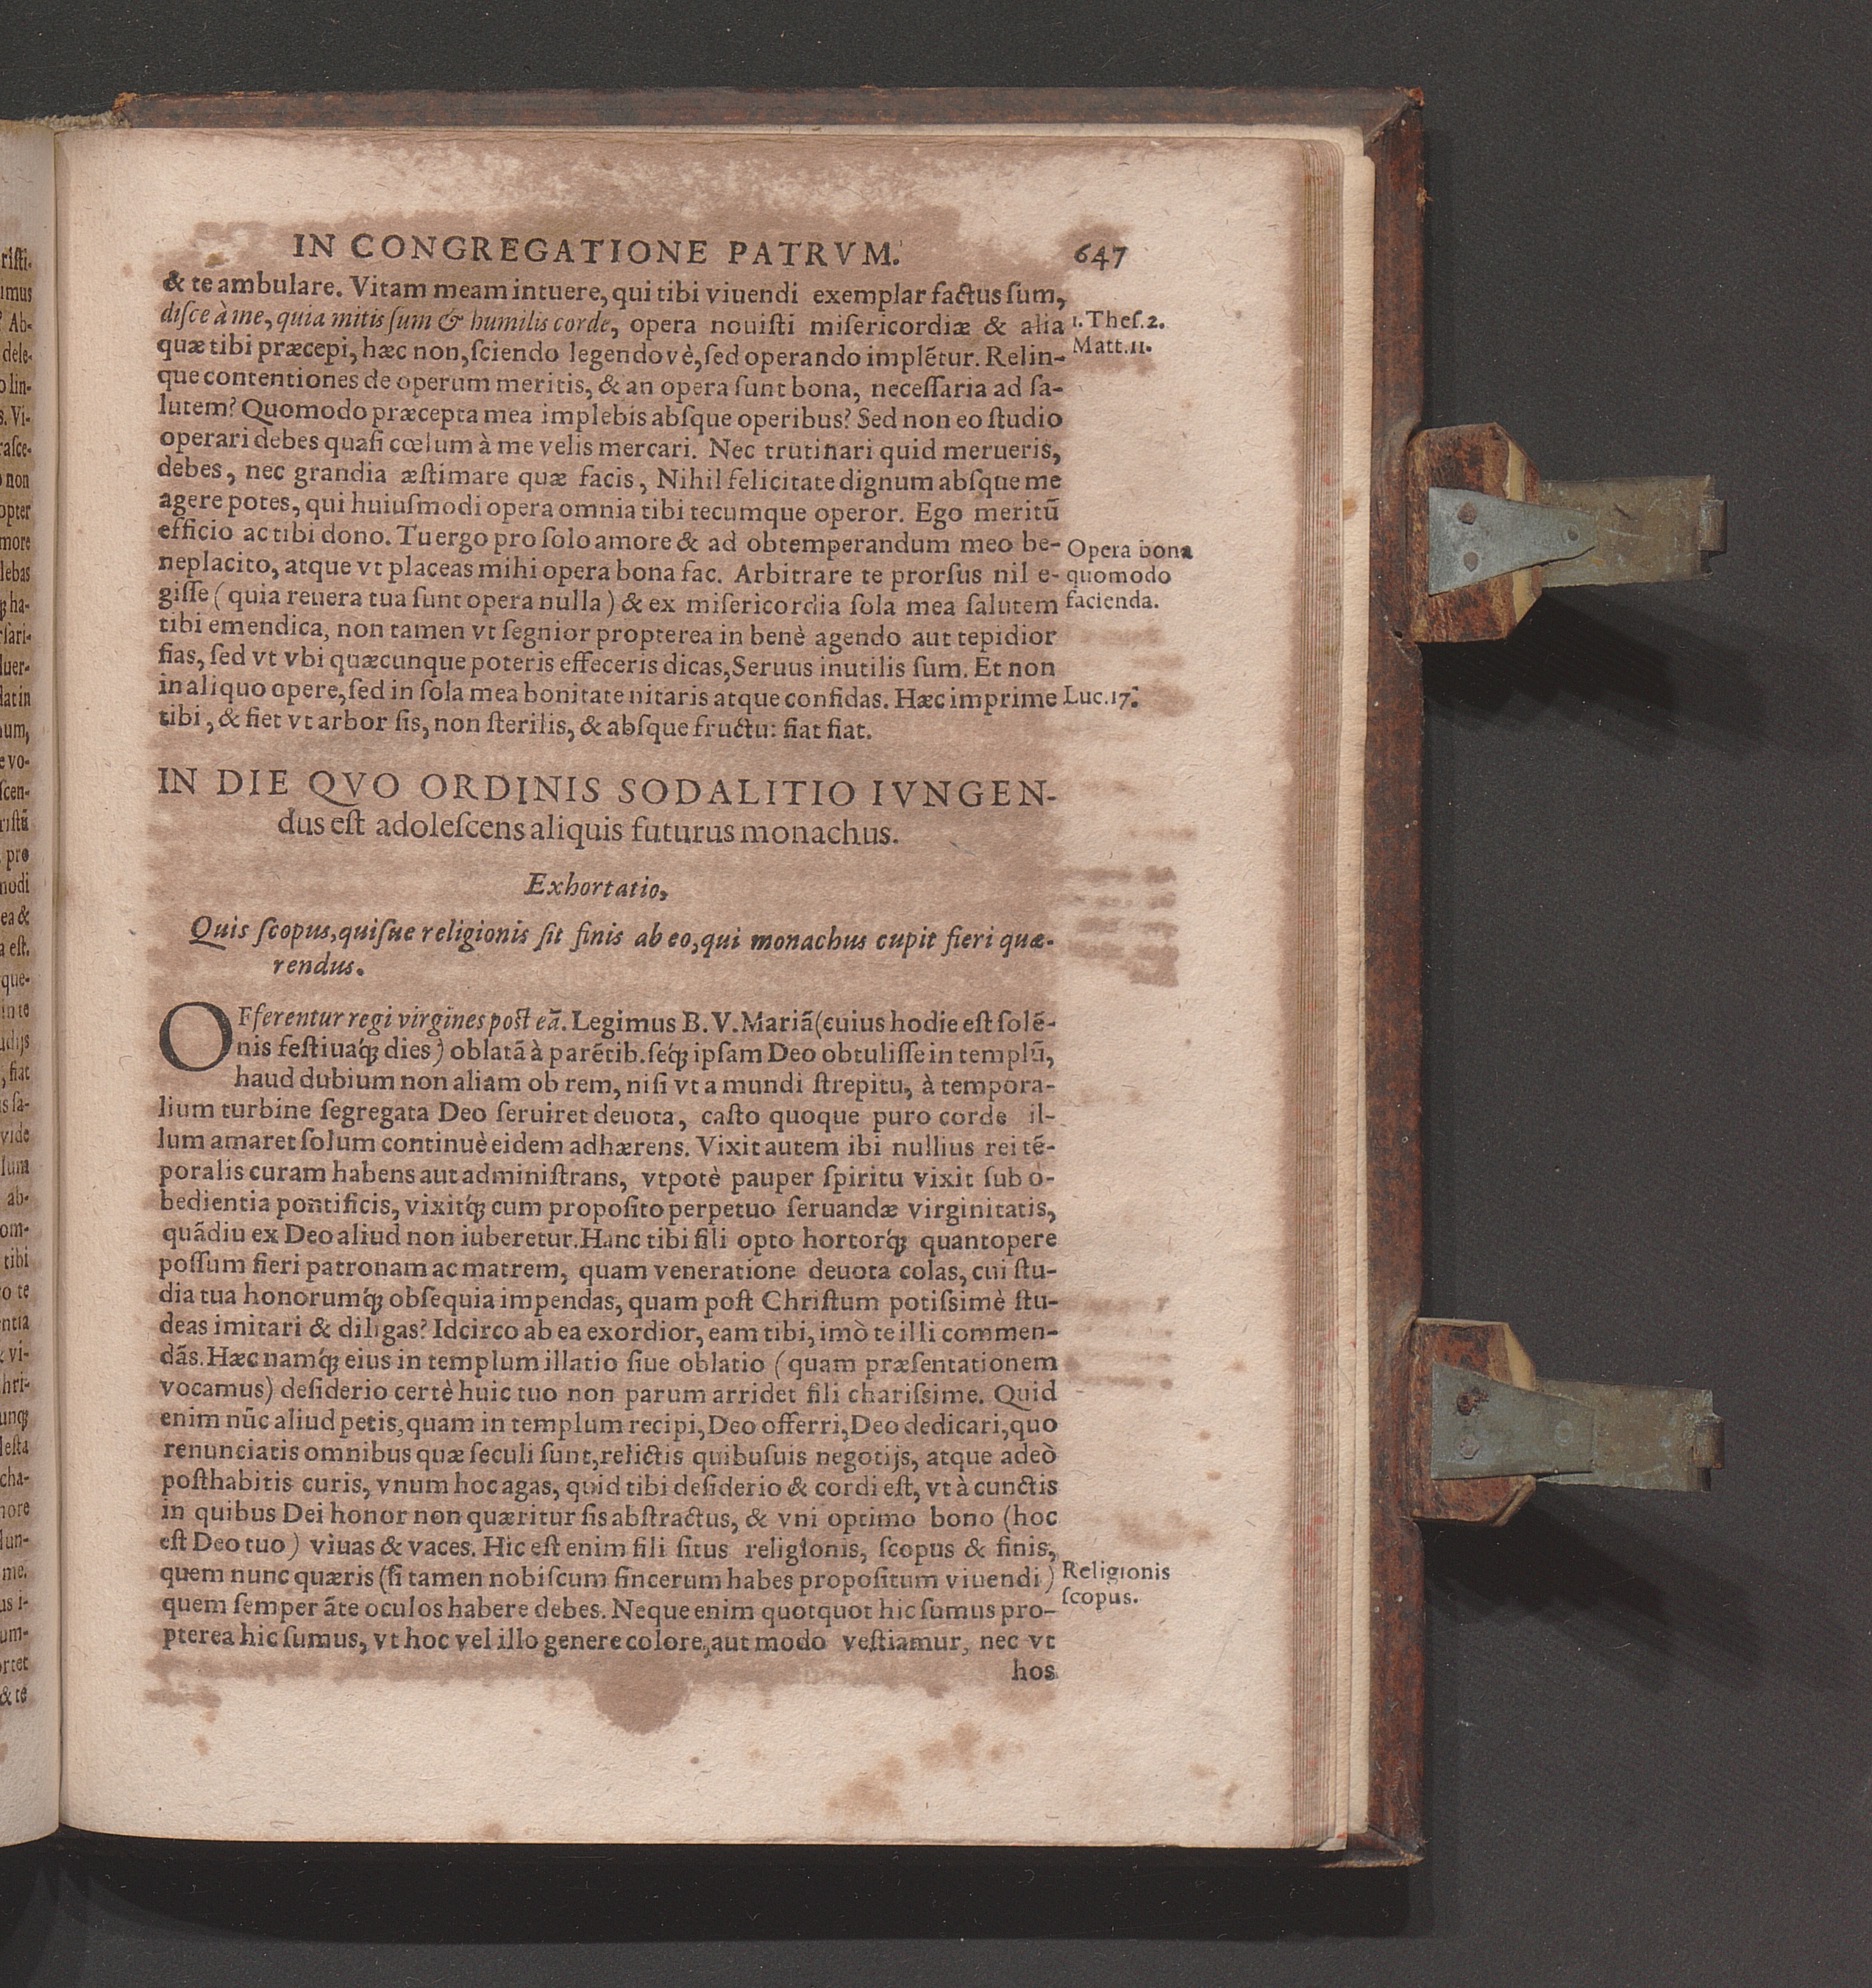 IN CONGREGATIONE PATRVM. 647
& te ambulare. Vitam meam intuere, qui tibi viuendi exemplar factus sum,
disce à me, quia mitis sum & humilis corde, opera nouisti misericordiæ & alia
1. Thes. 2.
quæ tibi præcepi, hæc non, sciendo legendovè, sed operando implẽtur. Relin-
Matt. 11.
que contentiones de operum meritis, & an opera sunt bona, necessaria ad sa-
lutem? Quomodo præcepta mea implebis absque operibus? Sed non eo studio
operari debes quasi cœlum à me velis mercari. Nec trutinari quid merueris,
debes, nec grandia æstimare quæ facis, Nihil felicitate dignum absque me
agere potes, qui huiusmodi opera omnia tibi tecumque operor. Ego meritũ
efficio ac tibi dono. Tu ergo pro solo amore & ad obtemperandum meo be-
Opera bona
neplacito, atque vt placeas mihi opera bona fac. Arbitrare te prorsus nil e-
quomodo
gisse (quia reuera tua sunt opera nulla) & ex misericordia sola mea salutem
facienda.
tibi emendica, non tamen vt segnior propterea in benè agendo aut tepidior
fias, sed vt vbi quæcunque poteris effeceris dicas, Seruus inutilis sum. Et non
in aliquo opere, sed in sola mea bonitate nitaris atque confidas. Hæc imprime
Luc. 17.
tibi, & fiet vt arbor sis, non sterilis, & absque fructu: fiat fiat.
IN DIE QVO ORDINIS SODALITIO IVNGEN-
dus est adolescens aliquis futurus monachus.
Exhortatio,
Quis scopus, quisue religionis sit finis ab eo, qui monachus cupit fieri quæ-
rendus.
OFferentur regi virgines post eã. Legimus B. V. Mariã (cuius hodie est solẽ-
nis festiuaq́ꝫ dies) oblatã à parẽtib. seq́ꝫ ipsam Deo obtulisse in templũ,
haud dubium non aliam ob rem, nisi vt a mundi strepitu, à tempora-
lium turbine segregata Deo seruiret deuota, casto quoque puro corde il-
lum amaret solum continuè eidem adhærens. Vixit autem ibi nullius rei tẽ-
poralis curam habens aut administrans, vtpotè pauper spiritu vixit sub o-
bedientia pontificis, vixitq́ꝫ cum proposito perpetuo seruandæ virginitatis,
quãdiu ex Deo aliud non iuberetur. Hanc tibi fili opto hortorq́ꝫ quantopere
possum fieri patronam ac matrem, quam veneratione deuota colas, cui stu-
dia tua honorumq́ꝫ obsequia impendas, quam post Christum potissimè stu-
deas imitari & diligas? Idcirco ab ea exordior, eam tibi, imò te illi commen-
dãs. Hæc namq́ꝫ eius in templum illatio siue oblatio (quam præsentationem
vocamus) desiderio certè huic tuo non parum arridet fili charissime. Quid
enim nũc aliud petis, quam in templum recipi, Deo offerri, Deo dedicari, quo
renunciatis omnibus quæ seculi sunt, relictis quibusuis negotijs, atque adeò
posthabitis curis, vnum hoc agas, quid tibi desiderio & cordi est, vt à cunctis
in quibus Dei honor non quæritur sis abstractus, & vni optimo bono (hoc
est Deo tuo) viuas & vaces. Hic est enim fili situs religionis, scopus & finis,
quem nunc quæris (si tamen nobiscum sincerum habes propositum viuendi)
Religionis
quem semper ãte oculos habere debes. Neque enim quotquot hic sumus pro-
scopus.
pterea hic sumus, vt hoc vel illo genere colore, aut modo vestiamur, nec vt
hos